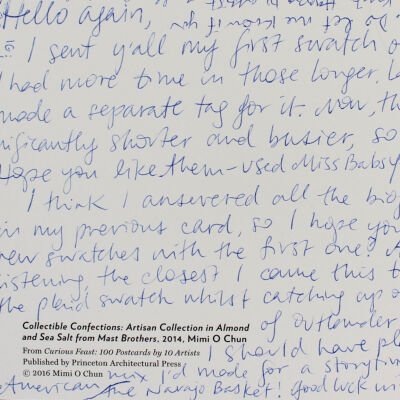 Hello again,
I sent y'all my first swatch o
had more time in those longer
made a separate tag for it. Now, th
nificantly shorter and busier, so
Hope you like them - used Miss Babs
I think I answered all the big
in my previous card, so I hope you
new swatches with the first one? A
istening, the closest I came this t
the plaid swatch whilst catching up o
of outlander
I should have pl
mix I'd made for a storytim
American
the Navajo Basket! Good luck wi
Collectible Confections: Artisan Collection in Almond
and Sea Salt from Mast Brothers, 2014, Mimi O Chun
From Curious Feast: 100 Postcards by 10 Artists
Published by Princeton Architectural Press
© 2016 Mimi O Chun